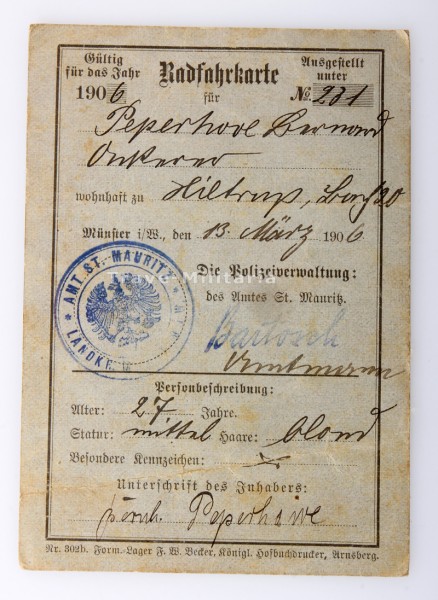 Gültig für das Jahr 1906
Radfahrkarte
für
Ausgestellt unter
No. 231
Peperhove Bernard
wohnhaft zu Hiltrup,
Münster i/W., den 13. März 1906
Die Polizeiverwaltung:
des Amtes St. Mauritz.
AMT ST. MAURITZ
LANDKR.
Bartosch
Amtmann
Personbeschreibung:
Alter: 27 Jahre.
Statur: mittel Haare: blond
Besondere Kennzeichen:
Unterschrift des Inhabers:
Peperhowe
Nr. 302b. Form.-Lager F. W. Becker, Königl. Hofbuchdrucker, Arnsberg.